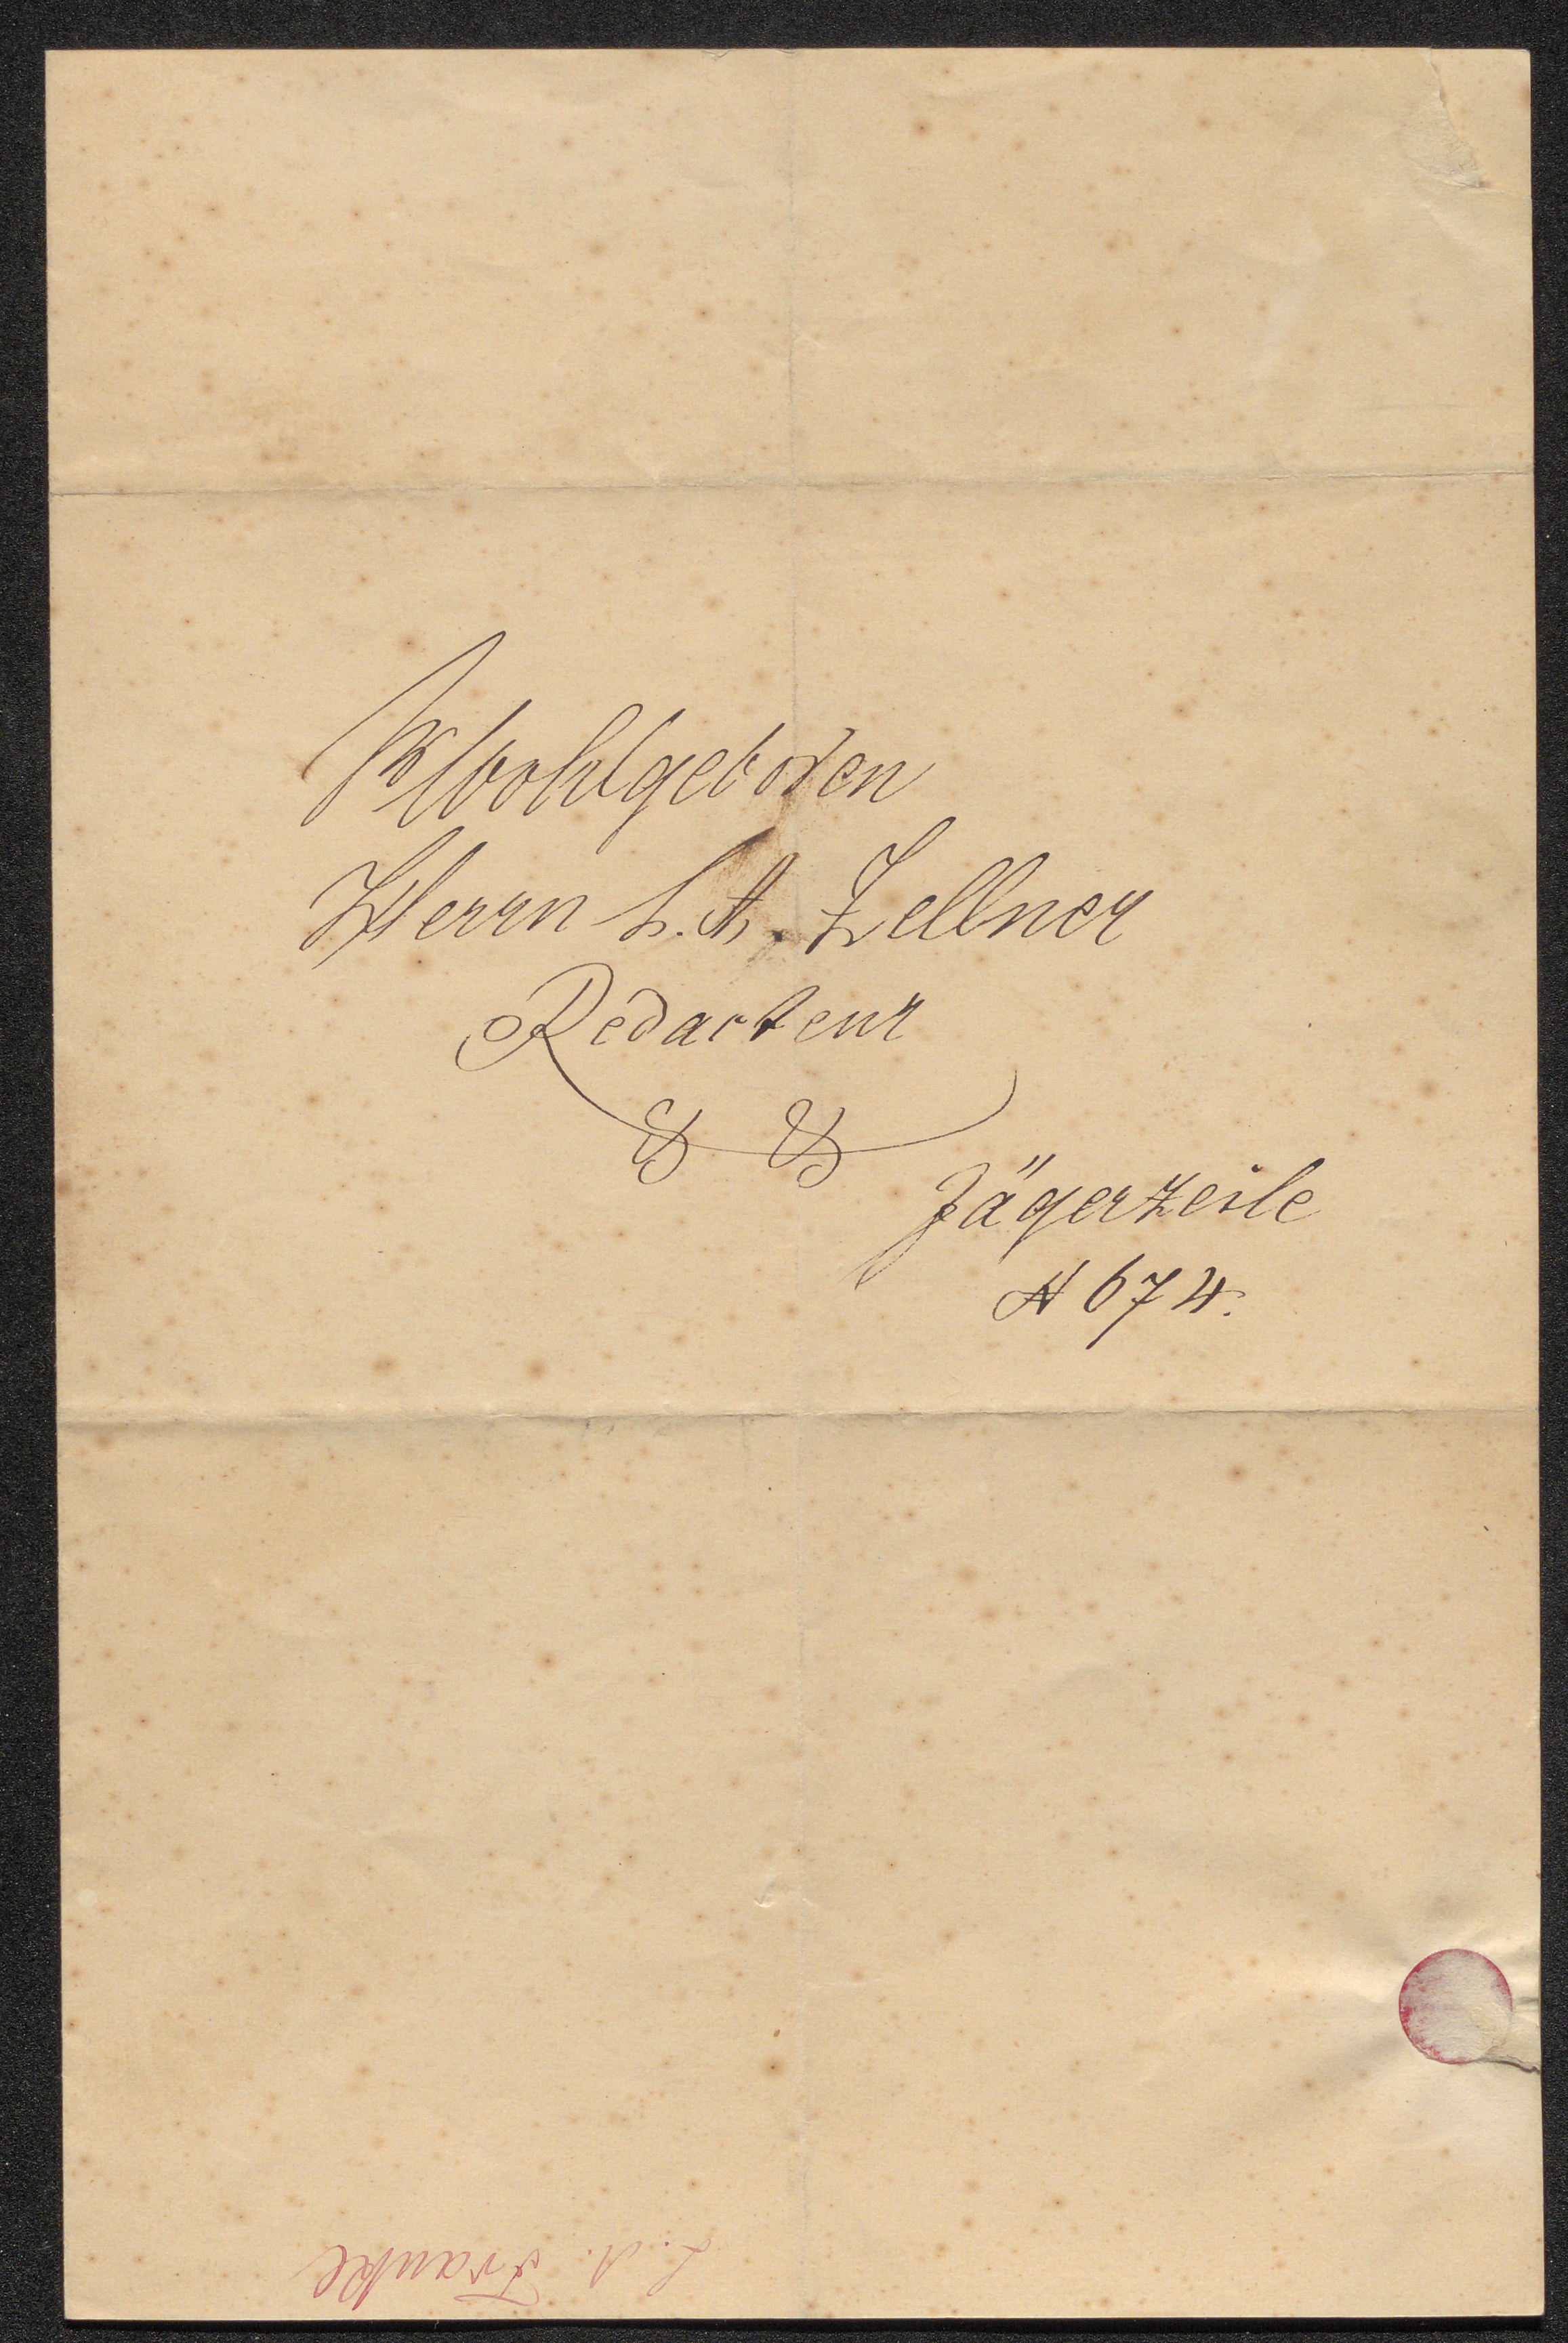 Wohlgeboren
Herrn L. A. Zellner
Redacteur
& &
Jägerzeile
N 674.
L. A. Frankl